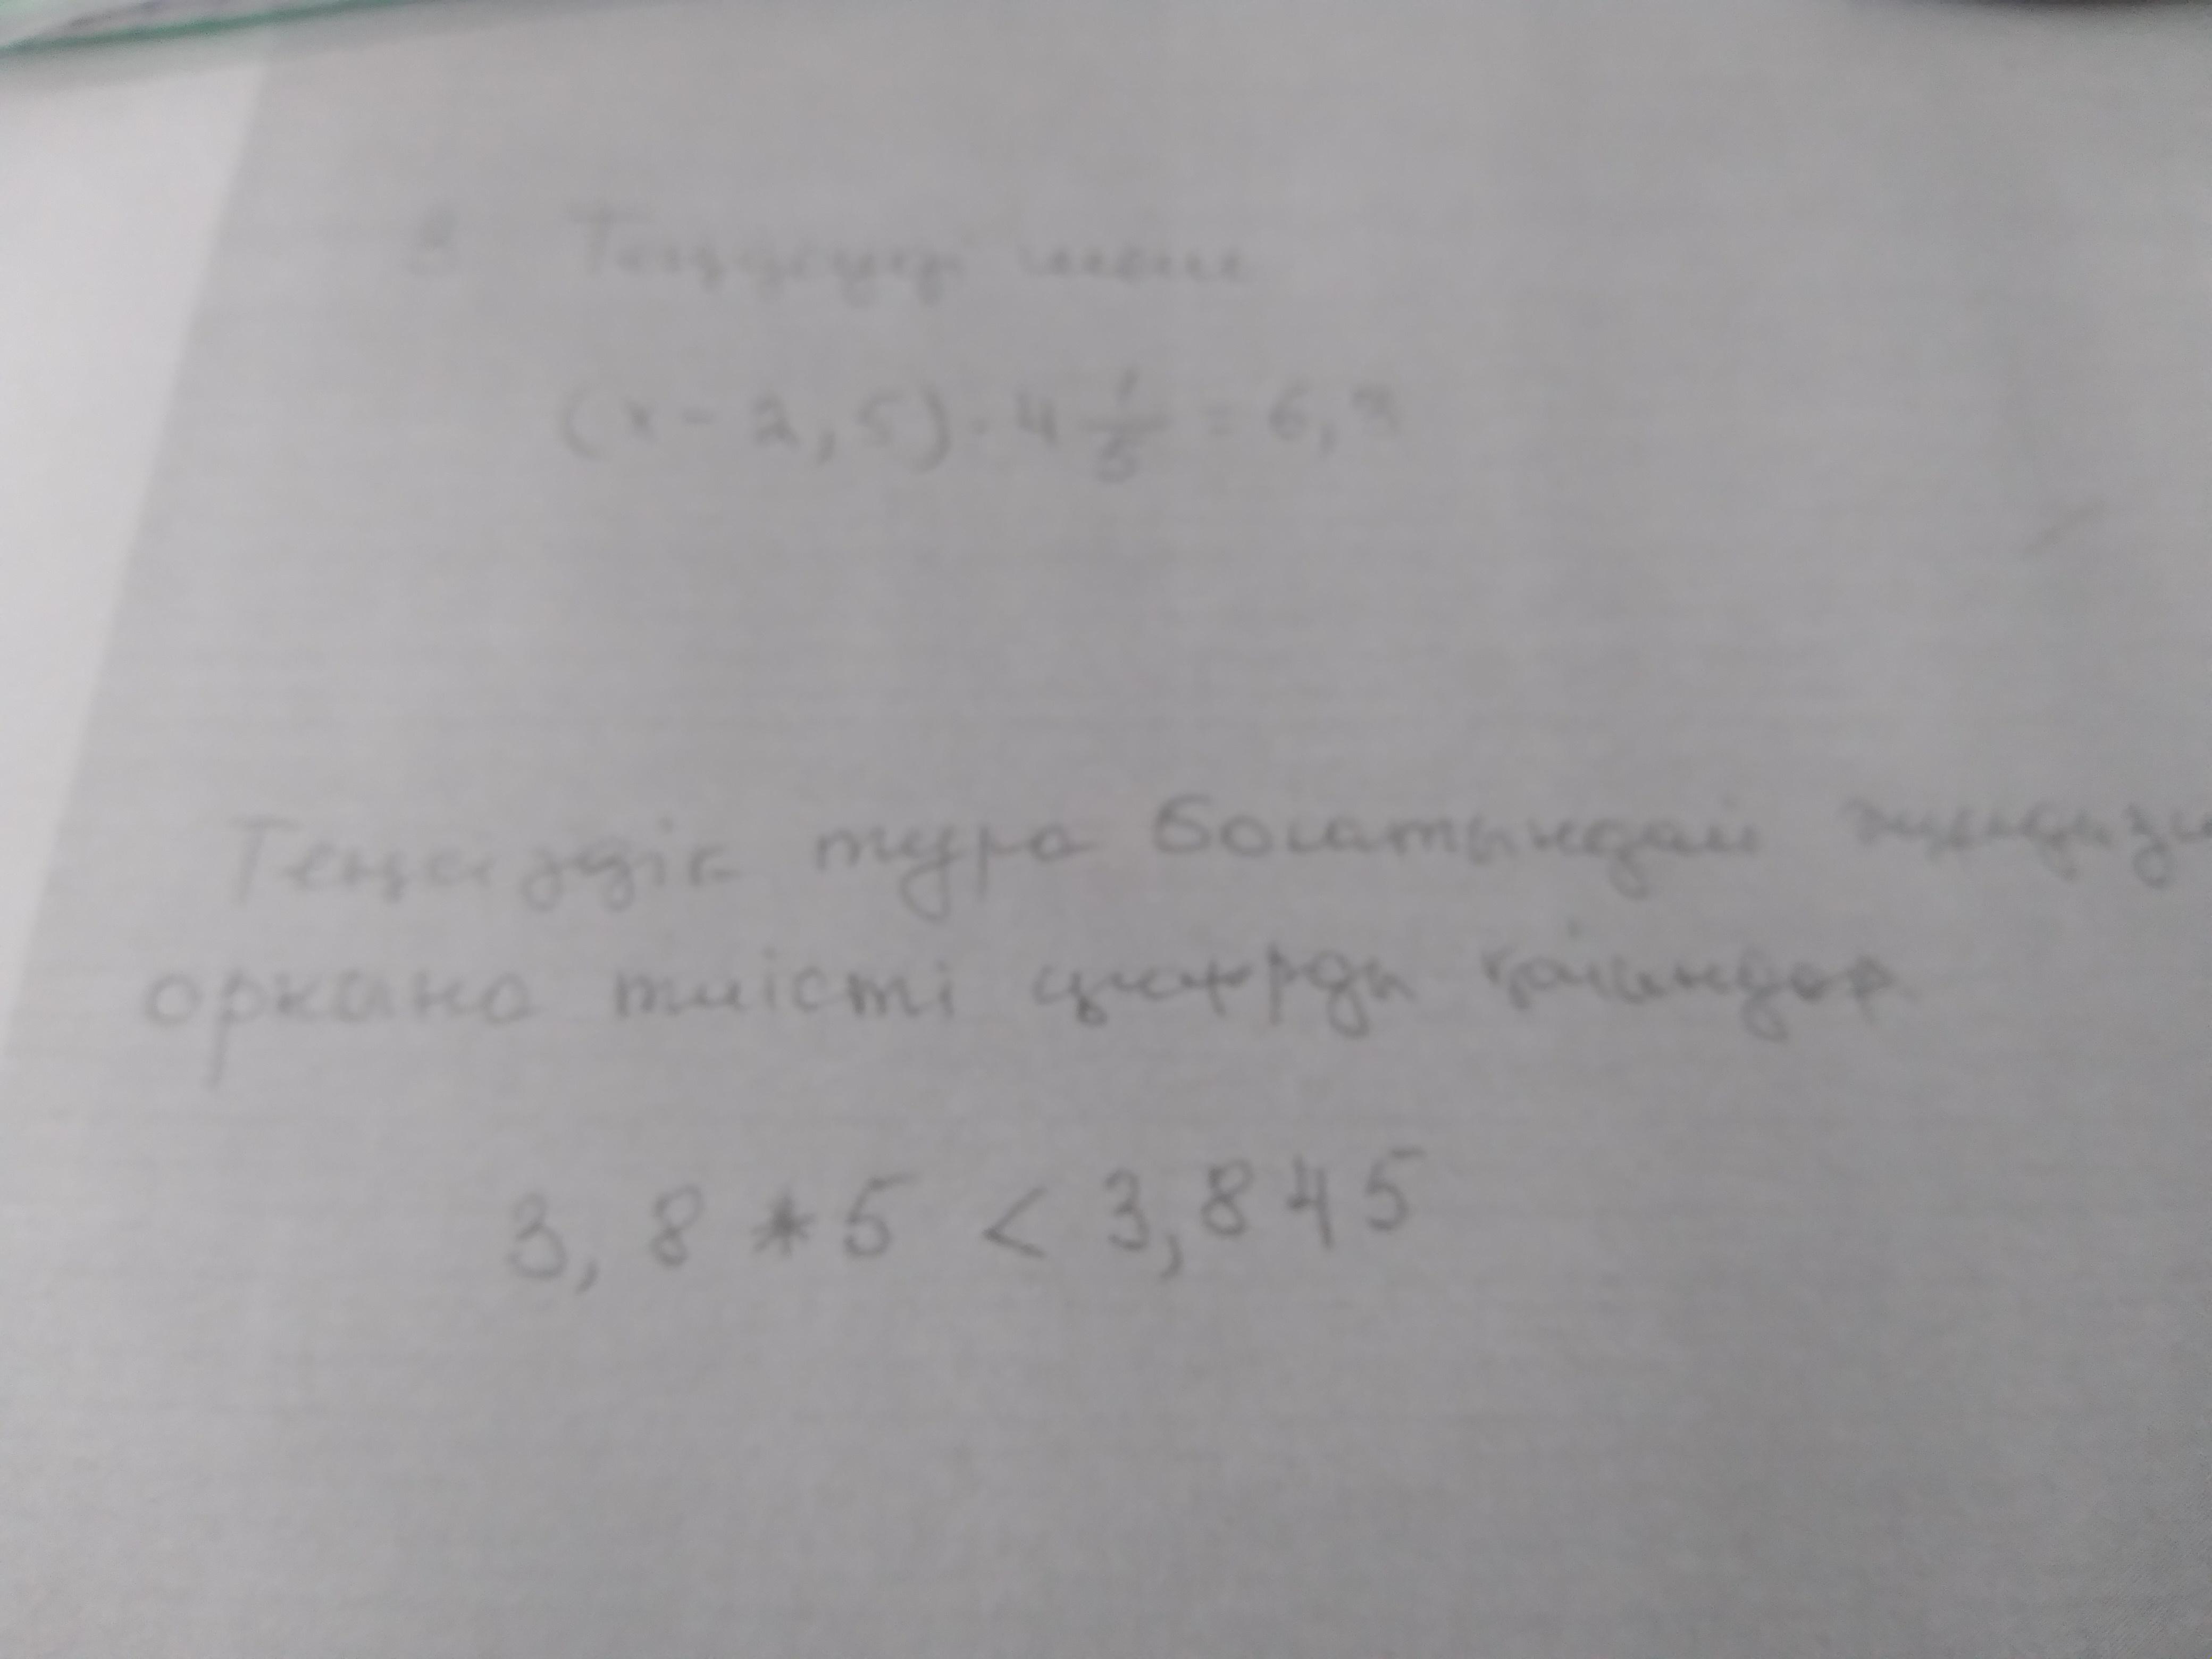 Теңдеуді шеш
(x - 2,5) · 4 1/5 = 6,3
Теңсіздік тура болатындай жұлдызша
орнына тиісті цифрды қойыңдар
3,8*5 < 3,845